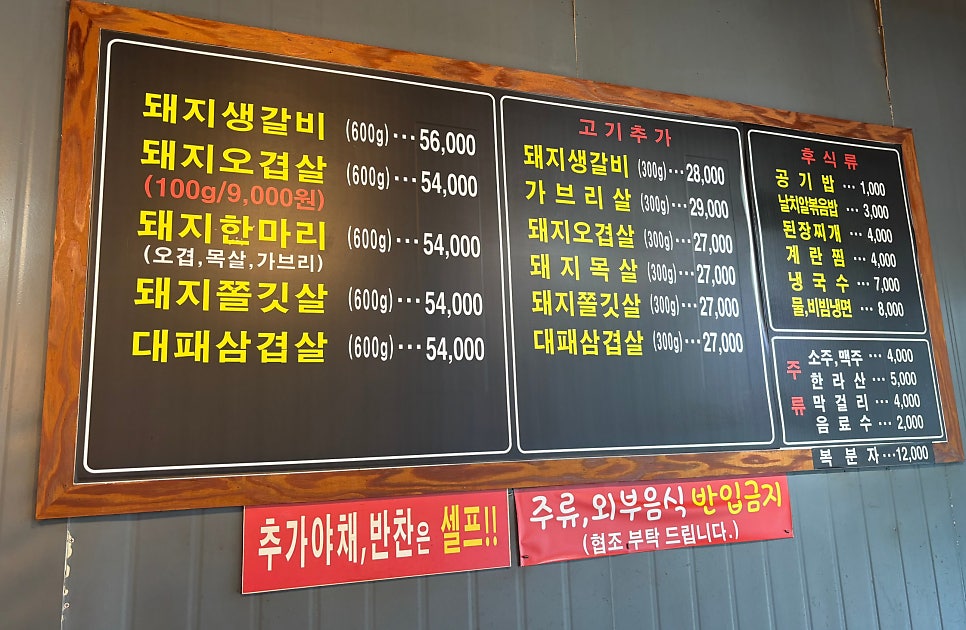 돼지생갈비 (600g)···56,000
돼지오겹살 (600g)···54,000
(100g/9,000원)
돼지한마리 (600g)···54,000
(오겹,목살,가브리)
돼지쫄깃살 (600g)···54,000
대패삼겹살 (600g)···54,000
고기추가
돼지생갈비 (300g)···28,000
가브리살 (300g)···29,000
돼지오겹살 (300g)···27,000
돼지목살 (300g)···27,000
돼지쫄깃살 (300g)···27,000
대패삼겹살 (300g)···27,000
후식류
공기밥 ···1,000
날치알볶음밥 ···3,000
된장찌개 ···4,000
계란찜 ···4,000
냉국수 ···7,000
물,비빔냉면 ···8,000
주류
소주,맥주 ···4,000
한라산 ···5,000
막걸리 ···4,000
음료수 ···2,000
복분자···12,000
추가야채,반찬은 셀프!!
주류,외부음식 반입금지
(협조 부탁 드립니다.)